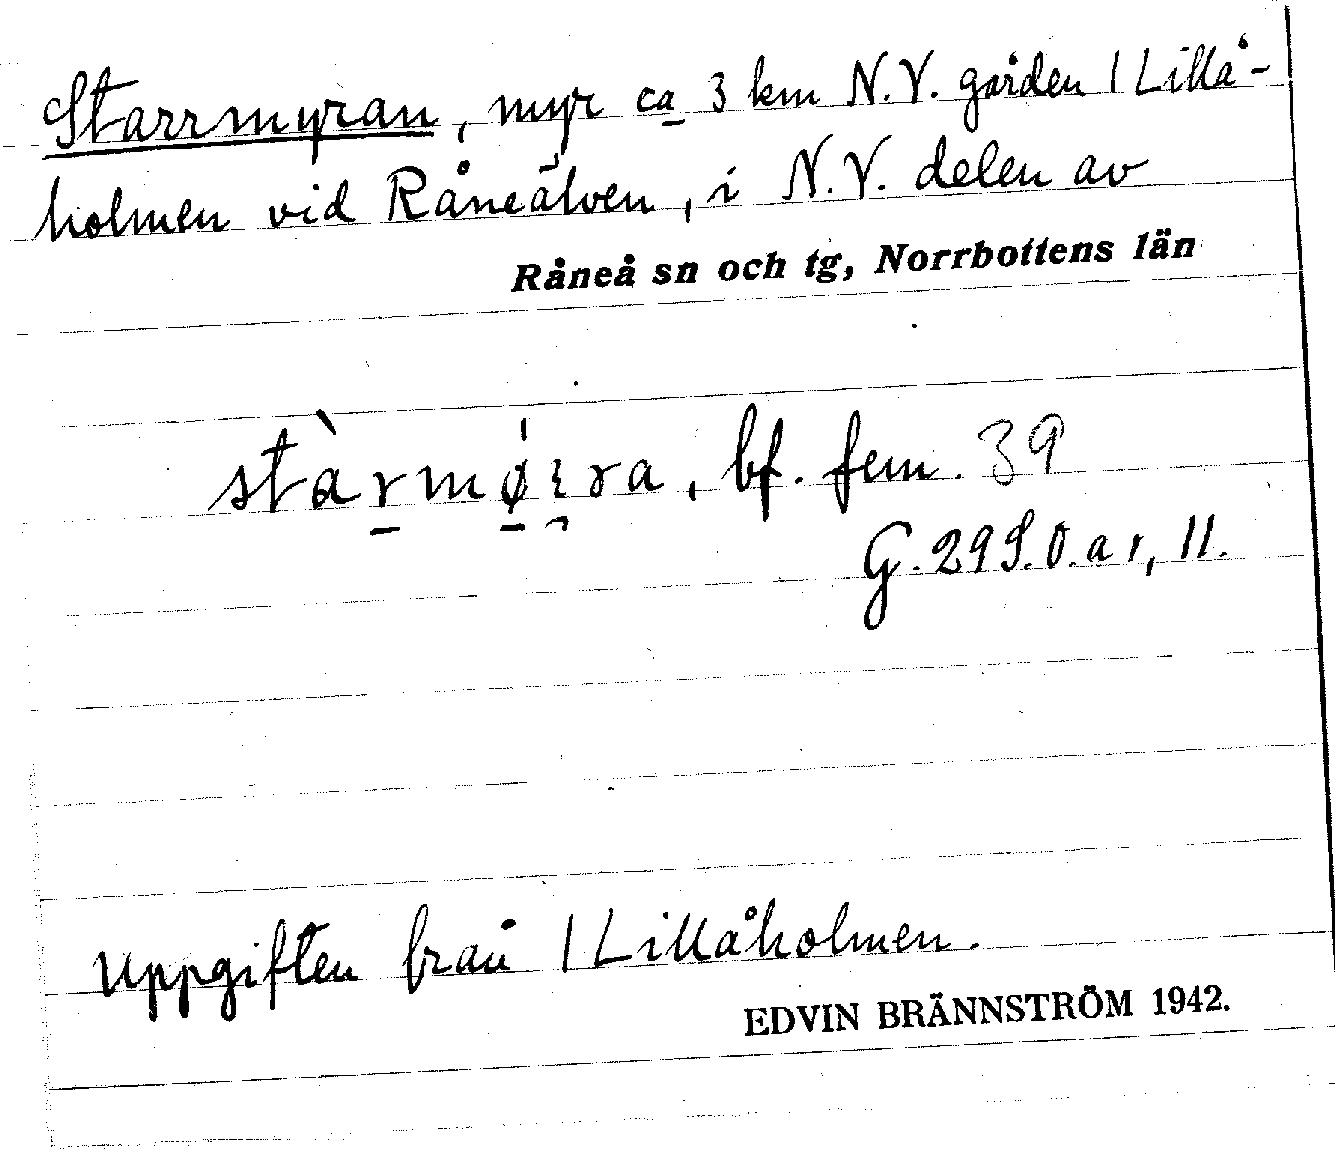 Starrmyran, myr ca 3 km N.V. gården 1 Lillå-
holmen vid Råneälven, i N.V. delen av
Råneå sn och tg, Norrbottens län
bf. fem. 39
G. 29 S.O. a 1, 11.
Uppgiften från 1 Lillåholmen.
EDVIN BRÄNNSTRÖM 1942.